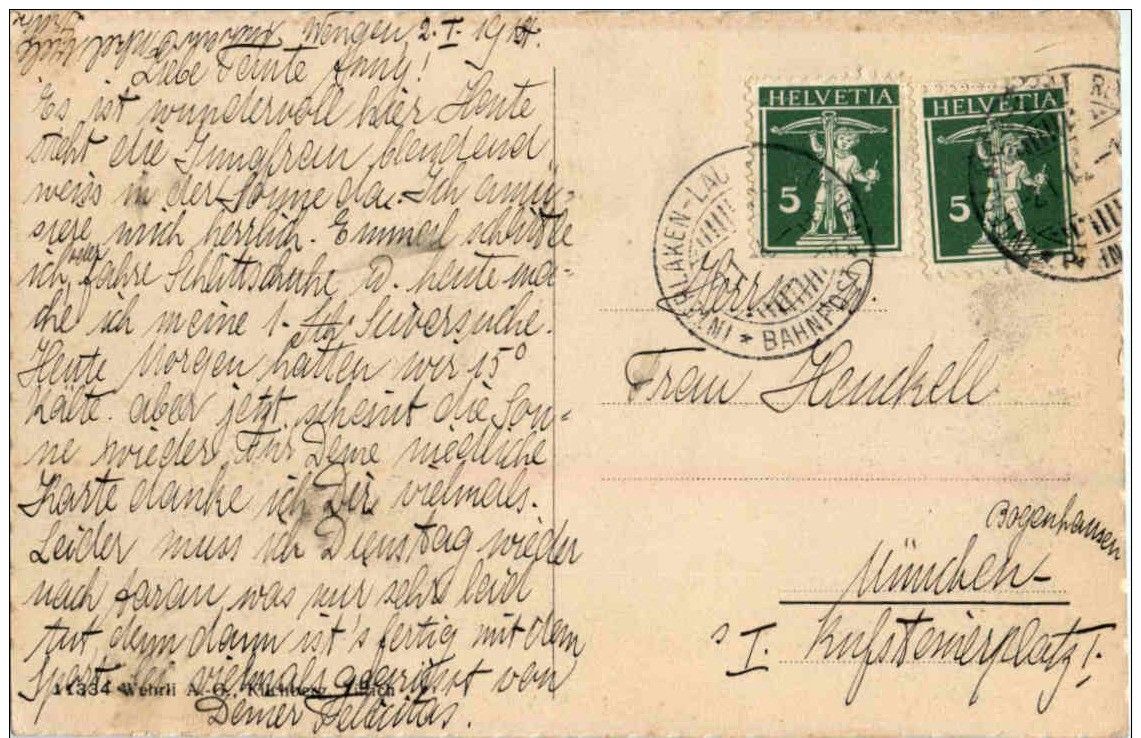 Wengen 2. I. 19
Liebe Tante Anny!
Es ist wundervoll hier Heute
steht die Jungfrau blendend
weiss in der Sonne da. Ich amü-
siere mich herrlich. Einmal schlittle
ich, fahre Schlittschuhe u. heute ma-
che ich meine 1. Versuche.
Heute Morgen hatten wir 15°
Kälte. aber jetzt scheint die Son-
ne wieder Für Deine niedliche
Karte danke ich Dir vielmals.
Leider muss ich Dienstag wieder
nach Aarau, was mir sehr leid
tut, denn dann ist's fertig mit dem
Sport. Sei vielmals gegrüsst von
Deiner Felicitas.
11334 Wehrli A.-G., Kilchberg Zürich
HELVETIA
5
HELVETIA
5
INTERLAKEN-LAU
BAHNPOST
Herrn u.
Frau Henckell
Bogenhausen
München-
I. Kufsteinerplatz 1.